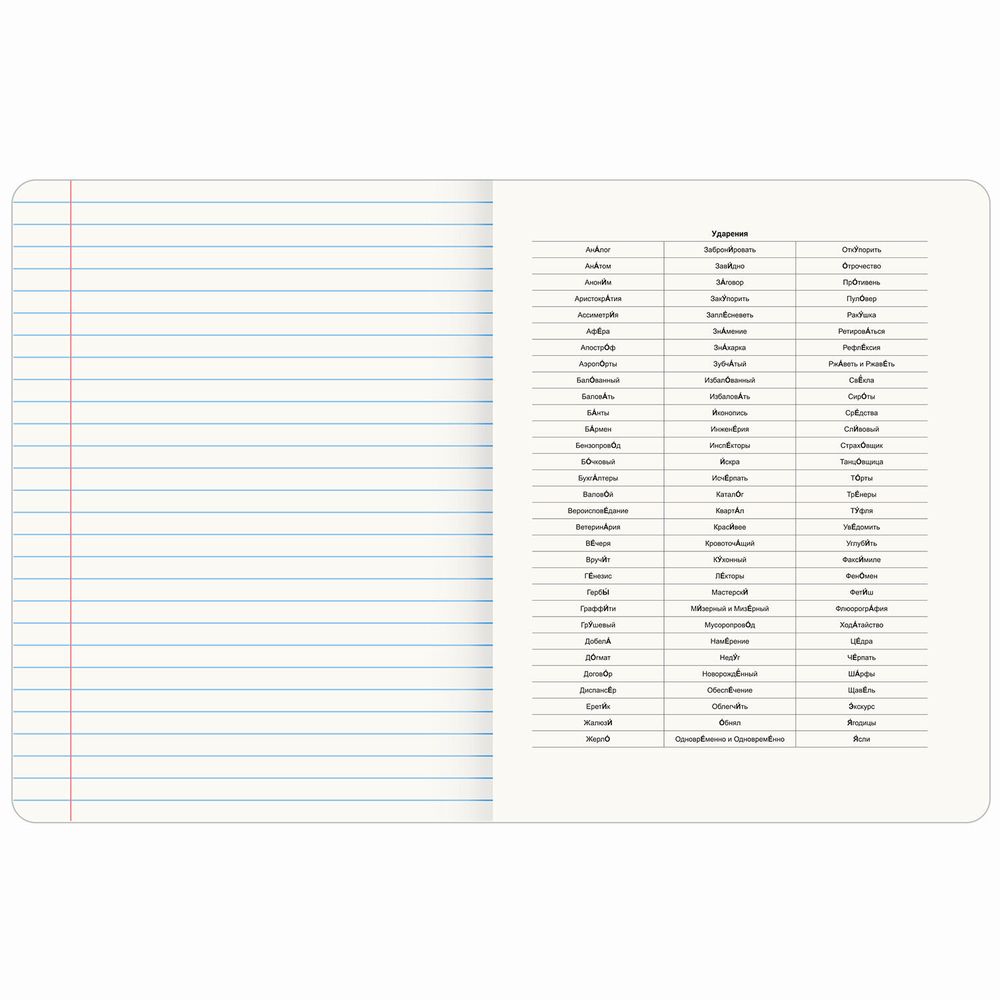 Ударения
АнА́лог ЗабронИ́ровать ОткУ́порить
АнА́том ЗавИ́дно О́трочество
АнонИ́м ЗА́говор ПрО́тивень
АристокрА́тия ЗакУ́порить ПулО́вер
АссиметрИ́я ЗаплЕ́сневеть РакУ́шка
АфЕ́ра ЗнА́мение РетировА́ться
АпострО́ф ЗнА́харка РефлЕ́ксия
АэропО́рты ЗубчА́тый РжА́веть и РжавЕ́ть
БалО́ванный ИзбалО́ванный СвЁкла
БаловА́ть ИзбаловА́ть СирО́ты
БА́нты И́конопись СрЕ́дства
БА́рмен ИнженЕ́рия СлИ́вовый
БензопровО́д ИнспЕ́кторы СтрахО́вщик
БО́чковый И́скра ТанцО́вщица
БухгА́лтеры ИсчЕ́рпать ТО́рты
ВаловО́й КаталО́г ТрЕ́неры
ВероисповЕ́дание КвартА́л ТУ́фля
ВетеринА́рия КрасИ́вее УвЕ́домить
ВЕ́черя КровоточА́щий УглубИ́ть
ВручИ́т КУ́хонный ФаксИ́миле
ГЕ́незис ЛЕ́кторы ФенО́мен
ГербЫ́ МастерскИ́ ФетИ́ш
ГраффИ́ти МИ́зерный и МизЕ́рный ФлюорогрА́фия
ГрУ́шевый МусоропровО́д ХодА́тайство
ДобелА́ НамЕ́рение ЦЕ́дра
ДО́гмат НедУ́г ЧЕ́рпать
ДоговО́р НоворождЁнный ША́рфы
ДиспансЕ́р ОбеспЕ́чение ЩавЕ́ль
ЕретИ́к ОблегчИ́ть Э́кскурс
ЖалюзИ́ О́бнял Я́годицы
ЖерлО́ ОдноврЕ́менно и ОдновремЕ́нно Я́сли